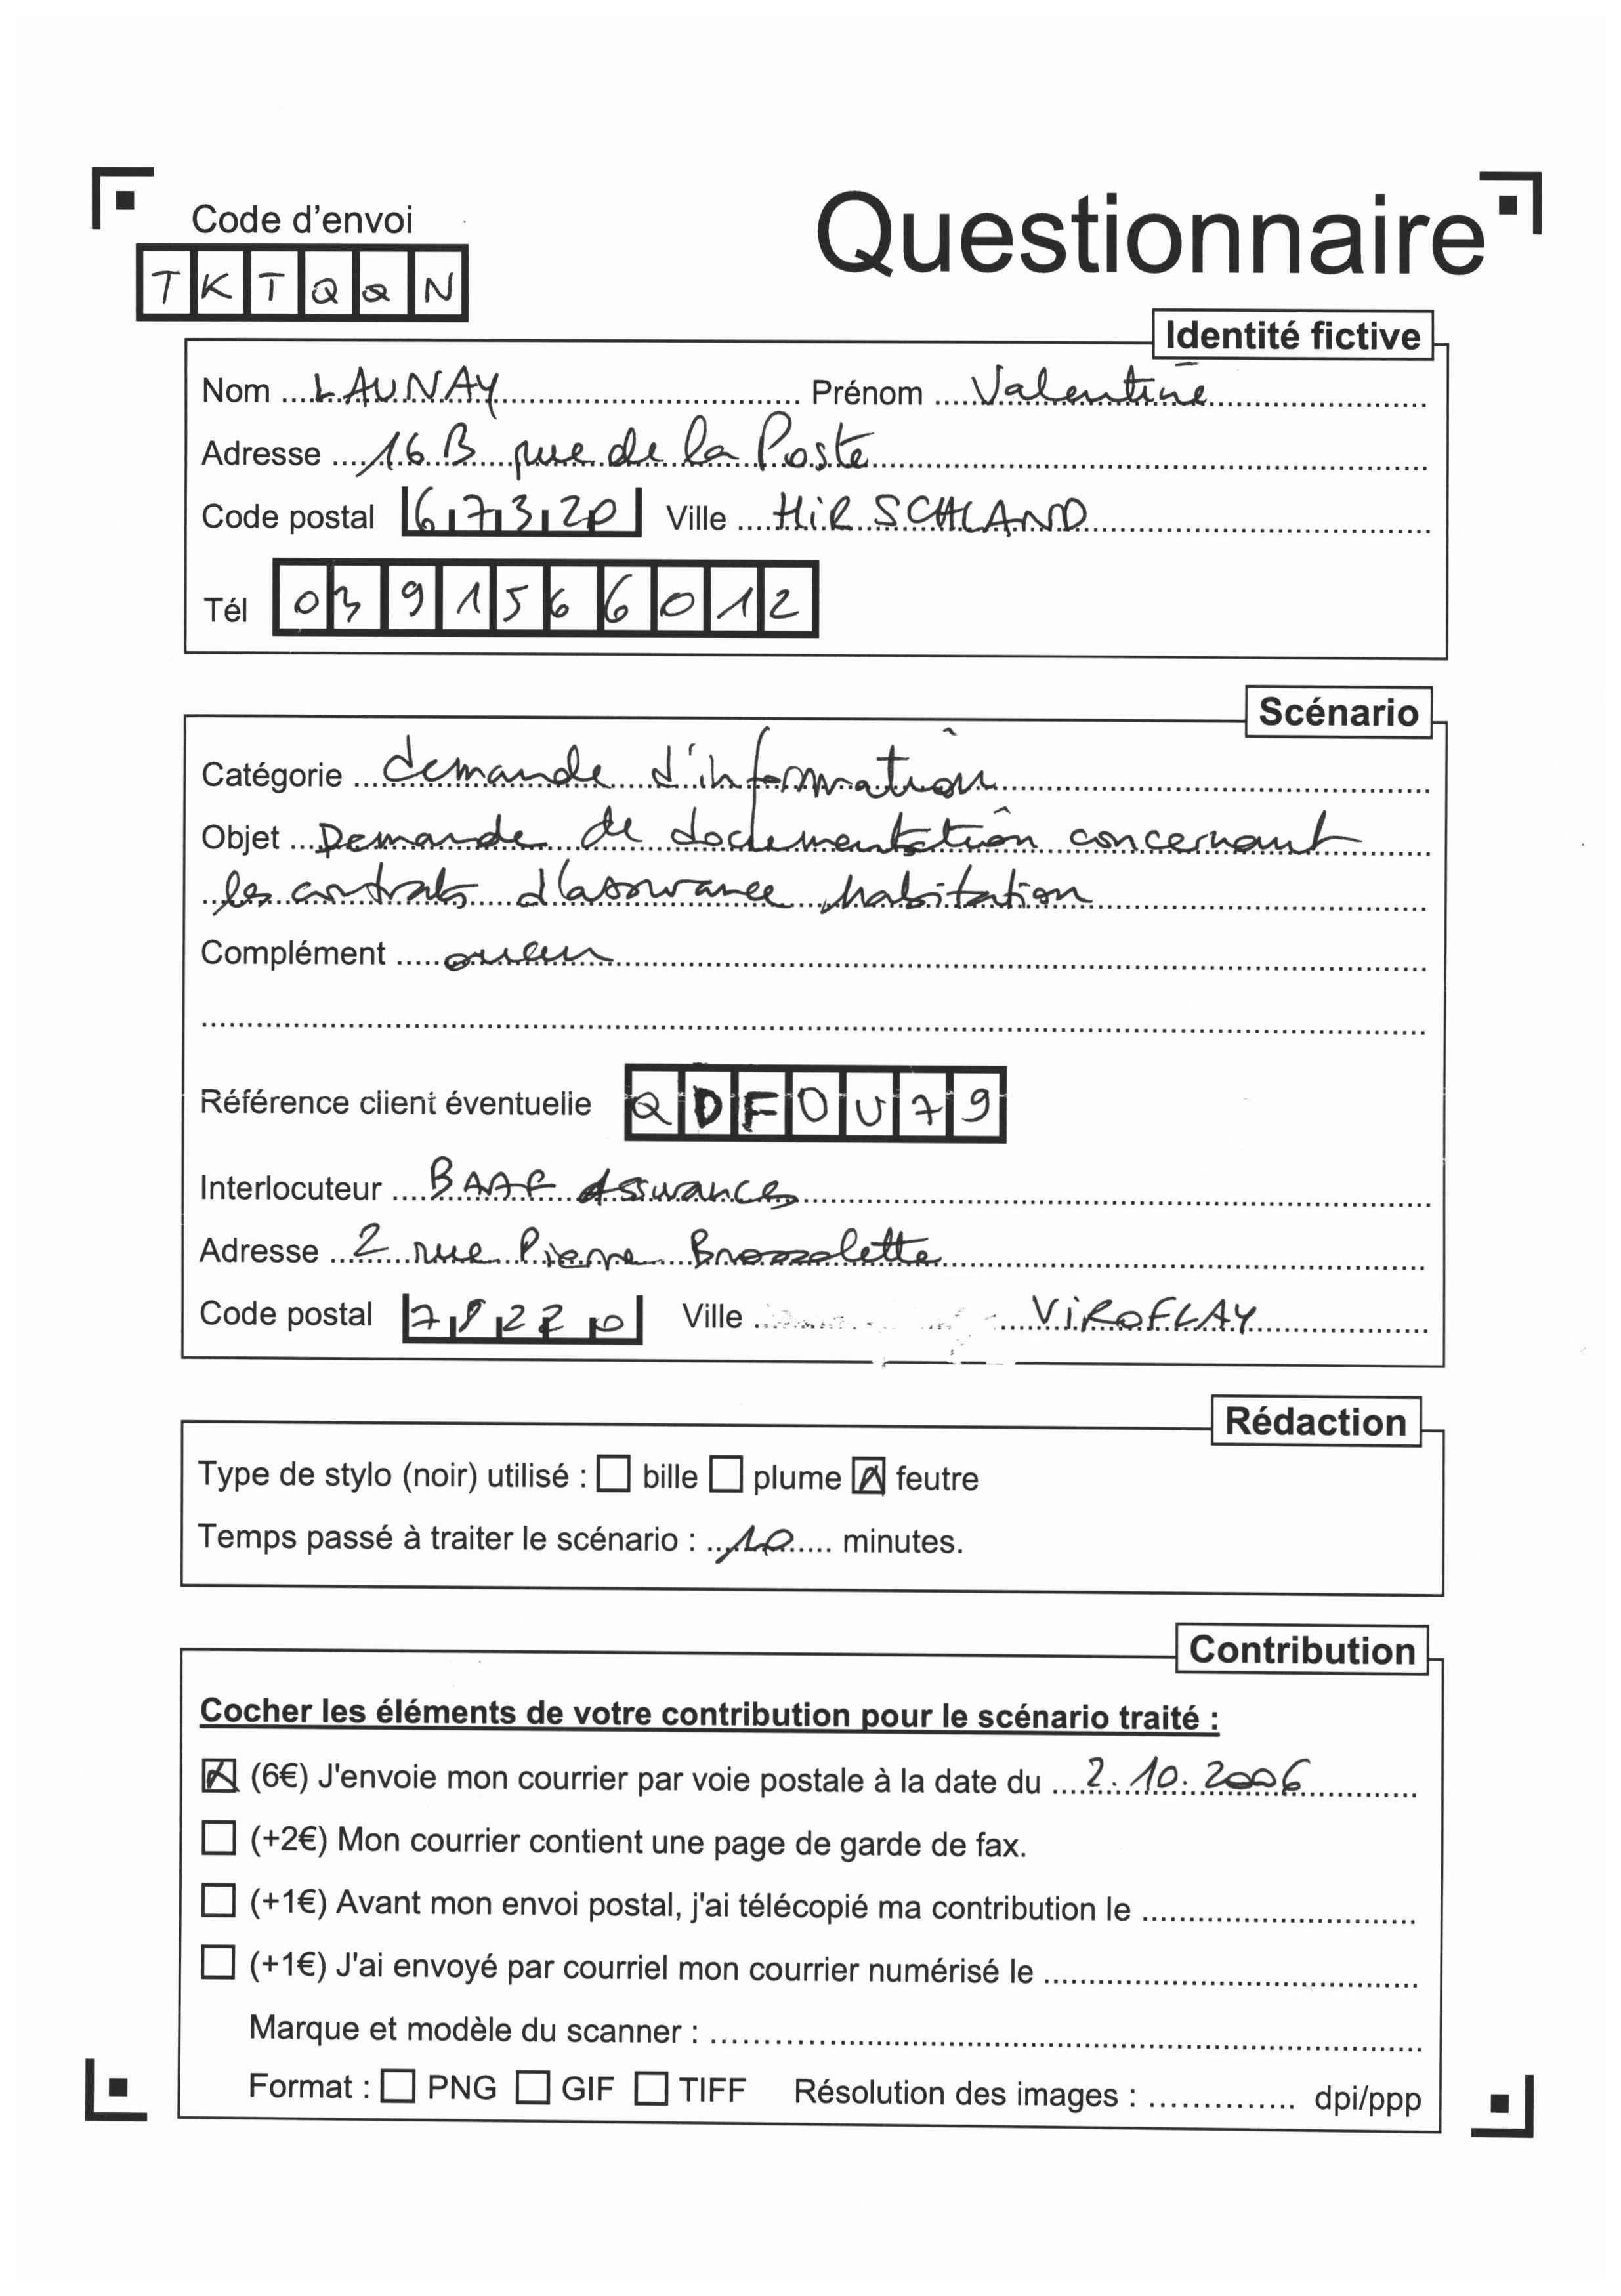 Code d'envoi
Questionnaire
TKTQQN
Identité fictive
Nom LAUNAY Prénom Valentine
Adresse 16 B rue de la Poste
Code postal 67320 Ville HIRSCHLAND
Tél 0391566012
Scénario
Catégorie demande d'information
Objet Demande de documentation concernant
les contrats d'assurance habitation
Complément
Référence client éventuelle QDFOU79
Interlocuteur BAAF Assurances
Adresse 2 rue Pierre Brossolette
Code postal 78220 Ville VIROFLAY
Rédaction
Type de stylo (noir) utilisé : bille plume feutre
Temps passé à traiter le scénario : 10 minutes.
Contribution
Cocher les éléments de votre contribution pour le scénario traité :
(6€) J'envoie mon courrier par voie postale à la date du 2.10.2006
(+2€) Mon courrier contient une page de garde de fax.
(+1€) Avant mon envoi postal, j'ai télécopié ma contribution le
(+1€) J'ai envoyé par courriel mon courrier numérisé le
Marque et modèle du scanner :
Format : PNG GIF TIFF Résolution des images : dpi/ppp